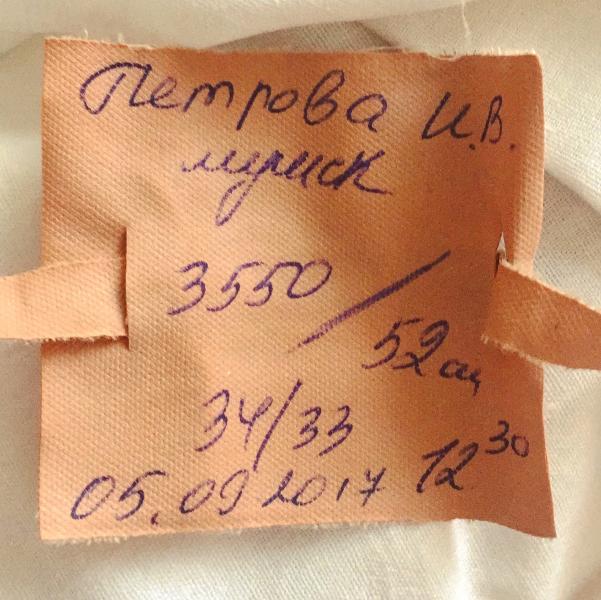 Петрова И.В.
мужск
3550/52см
34/33
05.09 2017 12 30